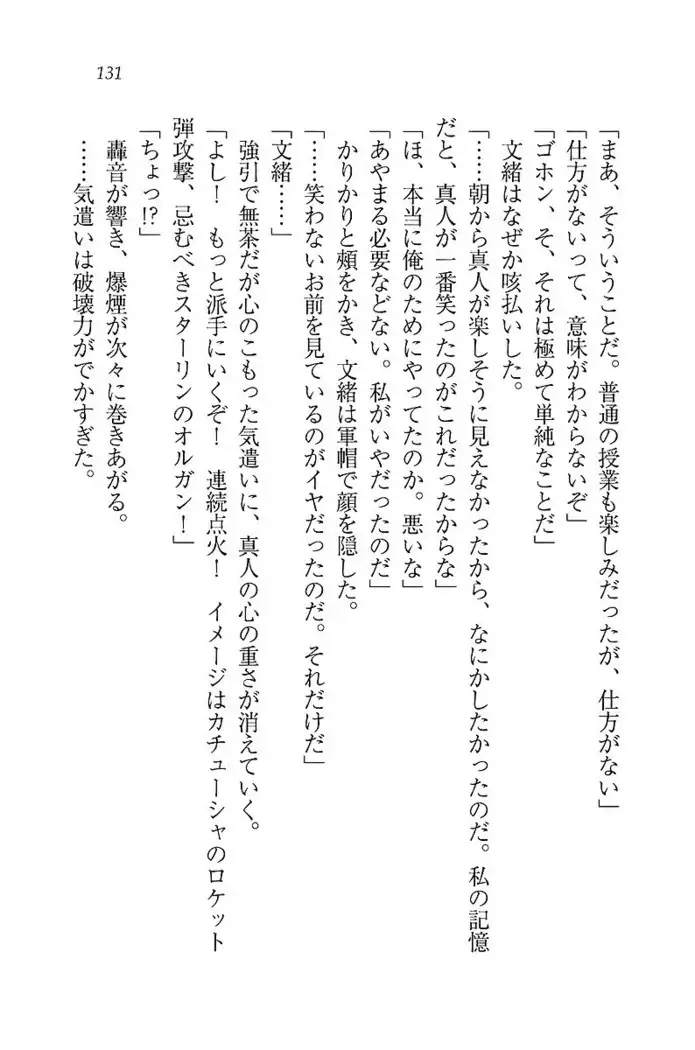 131
「まあ、そういうことだ。普通の授業も楽しみだったが、仕方がない」
「仕方がないって、意味がわからないぞ」
「ゴホン、そ、それは極めて単純なことだ」
文緒はなぜか咳払いした。
「……朝から真人が楽しそうに見えなかったから、なにかしたかったのだ。私の記憶
だと、真人が一番笑ったのがこれだったからな」
「ほ、本当に俺のためにやってたのか。悪いな」
「あやまる必要などない。私がいやだったのだ」
かりかりと頰をかき、文緒は軍帽で顔を隠した。
「……笑わないお前を見ているのがイヤだったのだ。それだけだ」
「文緒……」
強引で無茶だが心のこもった気遣いに、真人の心の重さが消えていく。
「よし！　もっと派手にいくぞ！　連続点火！　イメージはカチューシャのロケット
弾攻撃、忌むべきスターリンのオルガン！」
「ちょっ!?」
轟音が響き、爆煙が次々に巻きあがる。
……気遣いは破壊力がでかすぎた。